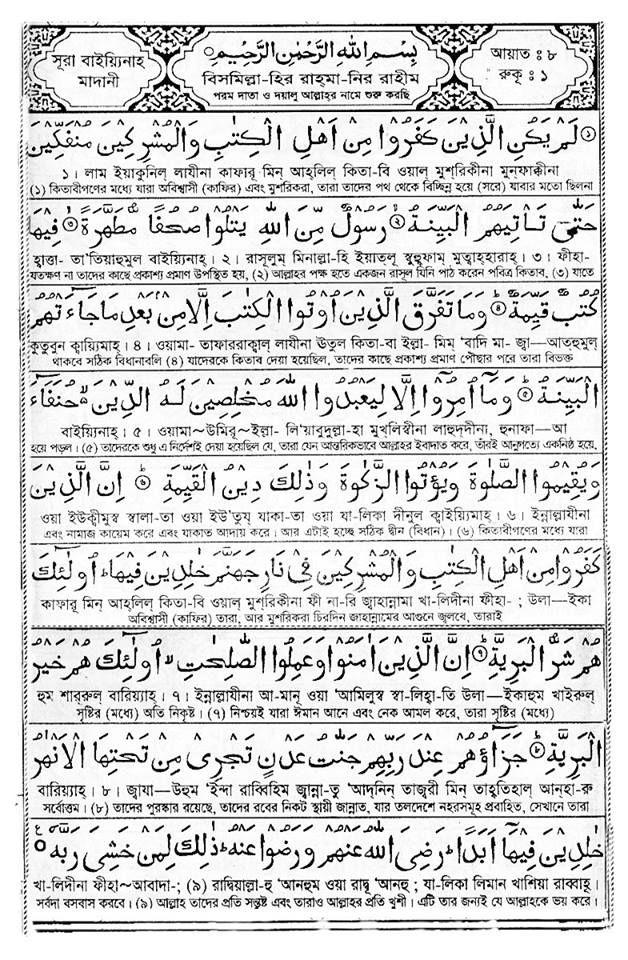 সূরা বাইয়্যিনাহ
মাদানী
بِسْمِ اللهِ الرَّحْمٰنِ الرَّحِيْمِ
বিসমিল্লা-হির রাহ্মা-নির রাহীম
পরম দাতা ও দয়ালু আল্লাহর নামে শুরু করছি
আয়াত : ৮
রুকূ : ১
لَمْ يَكُنِ الَّذِيْنَ كَفَرُوْا مِنْ اَهْلِ الْكِتٰبِ وَالْمُشْرِكِيْنَ مُنْفَكِّيْنَ
১। লাম ইয়াকুনিল্ লাযীনা কাফারূ মিন্ আহ্‌লিল্ কিতা-বি ওয়াল্ মুশ্‌রিকীনা মুন্‌ফাক্কীনা
(১) কিতাবীগণের মধ্যে যারা অবিশ্বাসী (কাফির) এবং মুশরিকরা, তারা তাদের পথ থেকে বিচ্ছিন্ন হয়ে (সরে) যাবার মতো ছিলনা
حَتّٰى تَاْتِيَهُمُ الْبَيِّنَةُ ۝ رَسُوْلٌ مِّنَ اللهِ يَتْلُوْا صُحُفًا مُّطَهَّرَةً ۝ فِيْهَا
হাত্তা- তা’তিয়াহুমুল বাইয়্যিনাহ্। ২। রাসূলুম্ মিনাল্লা-হি ইয়াত্‌লূ ছুহুফাম্ মুত্বাহ্‌হারাহ্। ৩। ফীহা-
যতক্ষণ না তাদের কাছে প্রকাশ্য প্রমাণ উপস্থিত হয়, (২) আল্লাহর পক্ষ হতে একজন রাসূল যিনি পাঠ করেন পবিত্র কিতাব, (৩) যাতে
كُتُبٌ قَيِّمَةٌ ۝ وَمَا تَفَرَّقَ الَّذِيْنَ اُوْتُوا الْكِتٰبَ اِلَّا مِنْۢ بَعْدِ مَا جَآءَتْهُمُ
কুতুবুন ক্বায়্যিমাহ্। ৪। ওয়ামা- তাফাররাক্বাল্ লাযীনা ঊতুল কিতা-বা ইল্লা- মিম্ ‘বাদি মা- জ্বা—আত্‌হুমুল্
থাকবে সঠিক বিধানাবলি (৪) যাদেরকে কিতাব দেয়া হয়েছিল, তাদের কাছে প্রকাশ্য প্রমাণ পৌছার পরে তারা বিভক্ত
الْبَيِّنَةُ ۝ وَمَآ اُمِرُوْٓا اِلَّا لِيَعْبُدُوا اللهَ مُخْلِصِيْنَ لَهُ الدِّيْنَ حُنَفَآءَ
বাইয়্যিনাহ্। ৫। ওয়ামা~উমিরূ~ইল্লা- লি’য়াবুদুল্লা-হা মুখ্‌লিস্বীনা লাহুদ্‌দীনা, হুনাফা—আ
হয়ে পড়ল। (৫) তাদেরকে শুধু এ নির্দেশই দেয়া হয়েছিল যে, তারা যেন আন্তরিকভাবে আল্লাহর ইবাদাত করে, তাঁরই আনুগত্যে একনিষ্ঠ হয়ে,
وَيُقِيْمُوا الصَّلٰوةَ وَيُؤْتُوا الزَّكٰوةَ وَذٰلِكَ دِيْنُ الْقَيِّمَةِ ۝ اِنَّ الَّذِيْنَ
ওয়া ইউক্বীমুস্ব স্বালা-তা ওয়া ইউ’তুয্ যাকা-তা ওয়া যা-লিকা দীনুল ক্বাইয়্যিমাহ্। ৬। ইন্নাল্লাযীনা
এবং নামাজ কায়েম করে এবং যাকাত আদায় করে। আর এটাই হচ্ছে সঠিক দ্বীন (বিধান)। (৬) কিতাবীগণের মধ্যে যারা
كَفَرُوْا مِنْ اَهْلِ الْكِتٰبِ وَالْمُشْرِكِيْنَ فِيْ نَارِ جَهَنَّمَ خٰلِدِيْنَ فِيْهَا اُولٰٓئِكَ
কাফারূ মিন্ আহ্‌লিল্ কিতা-বি ওয়াল্ মুশ্‌রিকীনা ফী না-রি জ্বাহান্নামা খা-লিদীনা ফীহা- ; উলা—ইকা
অবিশ্বাসী (কাফির) তারা, আর মুশরিকরা চিরদিন জাহান্নামের আগুনে জ্বলবে, তারাই
هُمْ شَرُّ الْبَرِيَّةِ ۝ اِنَّ الَّذِيْنَ اٰمَنُوْا وَعَمِلُوا الصّٰلِحٰتِ اُولٰٓئِكَ هُمْ خَيْرُ
হুম শার্‌রুল্ বারিয়্যাহ্। ৭। ইন্নাল্লাযীনা আ-মানূ ওয়া ‘আমিলুস্ব স্বা-লিহা-তি উলা—ইকাহুম খাইরুল্
সৃষ্টির (মধ্যে) অতি নিকৃষ্ট। (৭) নিশ্চয়ই যারা ঈমান আনে এবং নেক আমল করে, তারা সৃষ্টির (মধ্যে)
الْبَرِيَّةِ ۝ جَزَآؤُهُمْ عِنْدَ رَبِّهِمْ جَنّٰتُ عَدْنٍ تَجْرِيْ مِنْ تَحْتِهَا الْاَنْهٰرُ
বারিয়্যাহ্। ৮। জ্বাযা—উহুম ‘ইন্দা রাব্বিহিম জ্বান্না-তু ‘আদ্‌নিন্ তাজ্বরী মিন্ তাহ্‌তিহাল্ আন্‌হা-রু
সর্বোত্তম। (৮) তাদের পুরস্কার রয়েছে, তাদের রবের নিকট স্থায়ী জান্নাত, যার তলদেশে নহরসমূহ প্রবাহিত, সেখানে তারা
خٰلِدِيْنَ فِيْهَآ اَبَدًا رَضِيَ اللهُ عَنْهُمْ وَرَضُوْا عَنْهُ ذٰلِكَ لِمَنْ خَشِيَ رَبَّهٗ ۝
খা-লিদীনা ফীহা~আবাদা-; (৯) রাদ্বিয়াল্লা-হু ‘আনহুম ওয়া রাদ্বূ ‘আনহু ; যা-লিকা লিমান খাশিয়া রাব্বাহূ।
সর্বদা বসবাস করবে। (৯) আল্লাহ তাদের প্রতি সন্তুষ্ট এবং তারাও আল্লাহর প্রতি খুশী। এটি তার জন্যই যে আল্লাহকে ভয় করে।